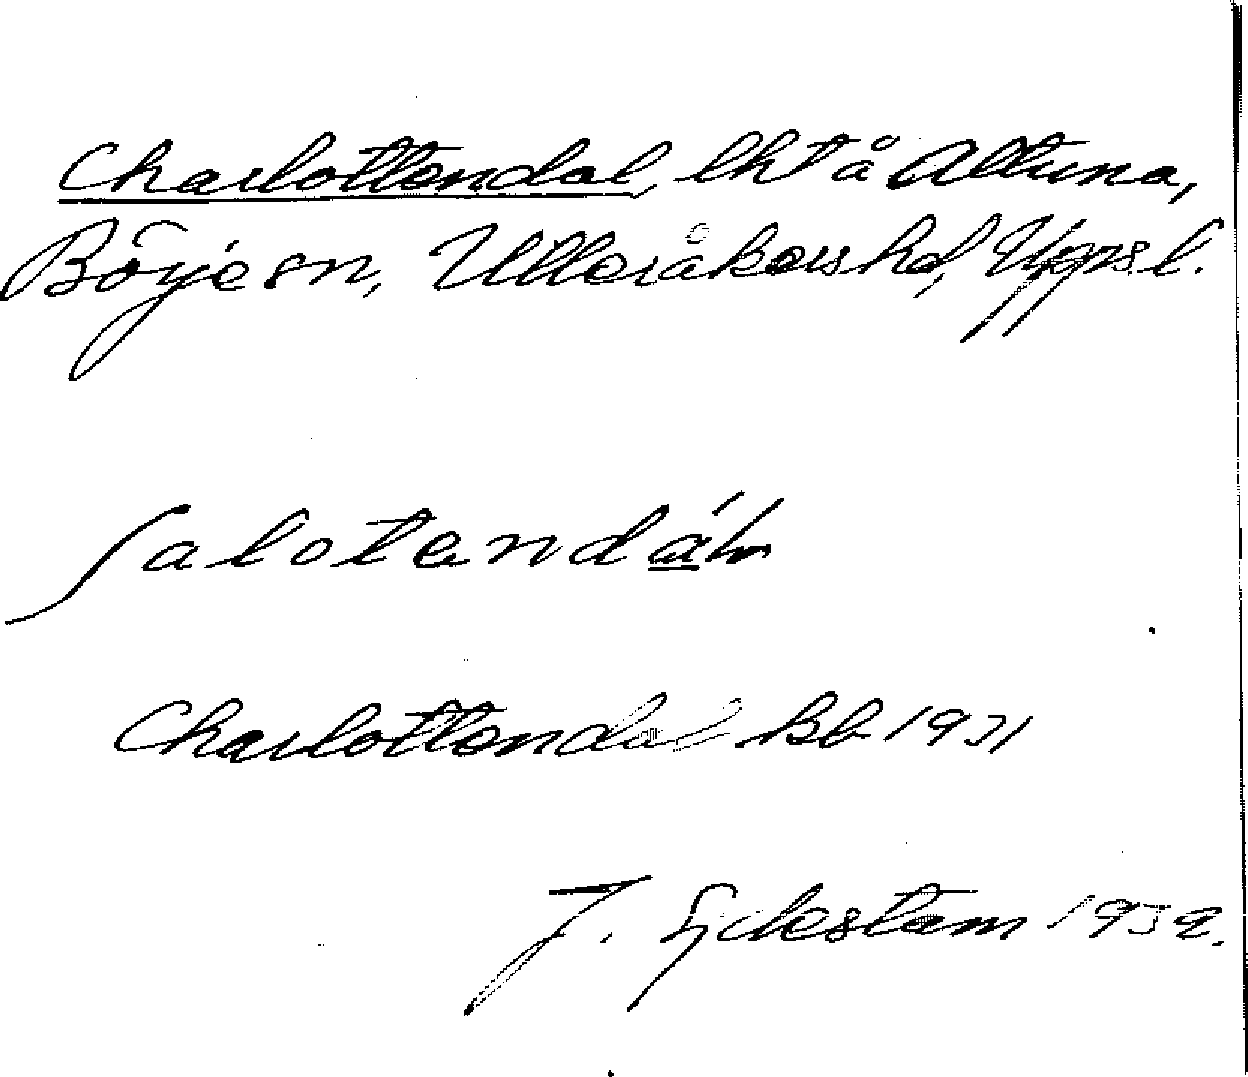 Charlottendal, lht å Altuna,
Börje sn, Ulleråkers hd, Uppsl.
ʃalotendáln
Charlottendal Kb 1931
J. Eckestam 1932.